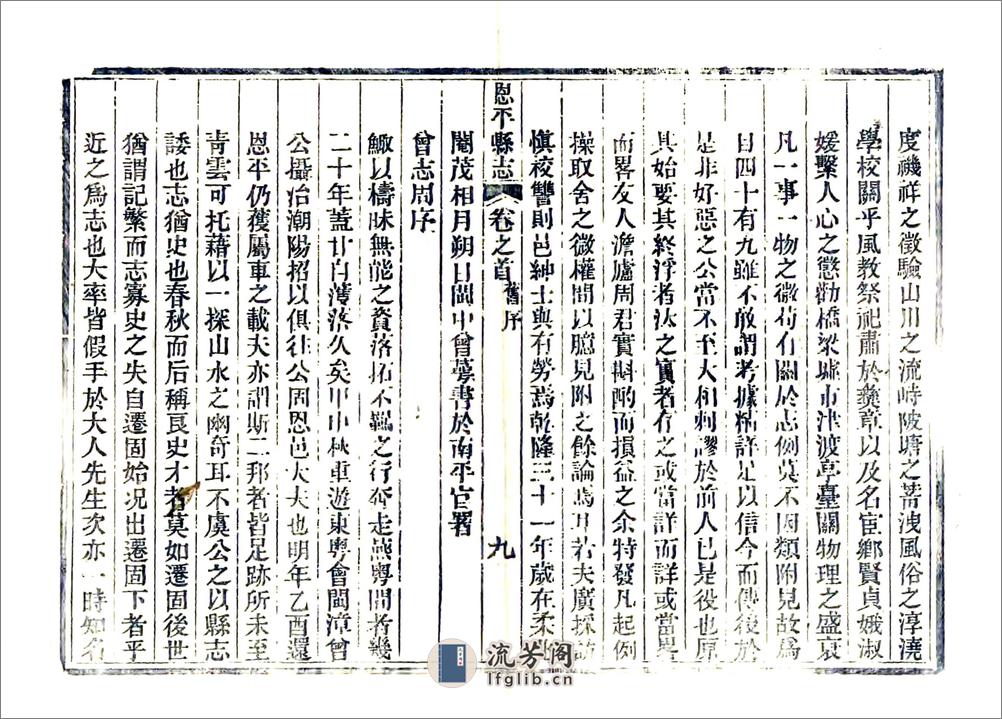 度禨祥之徵驗山川之流峙陂塘之蓄洩風俗之淳澆
學校關乎風教祭祀肅於彝章以及名宦鄉賢貞娥淑
媛繫人心之懲勸橋梁墟市津渡亭臺關物理之盛衰
凡一事一物之微苟有關於志例莫不因類附見故為
目四十有九雖不敢謂考據精詳足以信今而傳後於
是非好惡之公當不至大相刺謬於前人已是役也原
其始要其終浮者汰之實者存之或當詳而詳或當畧
而畧友人澹廬周君實斟酌而損益之余特發凡起例
操取舍之微權間以臆見附之餘論焉耳若夫廣採訪
慎校讐則邑紳士與有勞焉乾隆三十一年歲在柔兆
閹茂相月朔日閩中曾萼書於南平官署
恩平縣志 卷之首 舊序 九
曾志周序
鰍以檮昧無能之資落拓不羈之行奔走燕粤間者幾
二十年葢甘自薄落久矣甲申秋重遊東粤會閩漳曾
公攝治潮陽招以俱往公固恩邑大夫也明年乙酉還
恩平仍獲屬車之載夫亦謂斯二邦者皆足跡所未至
青雲可托藉以一探山水之幽奇耳不虞公之以縣志
諉也志猶史也春秋而后稱良史才者莫如遷固後世
猶謂記繁而志寡史之失自遷固始况出遷固下者乎
近之為志也大率皆假手於大人先生次亦一時知名
流芳阁
lfglib.cn